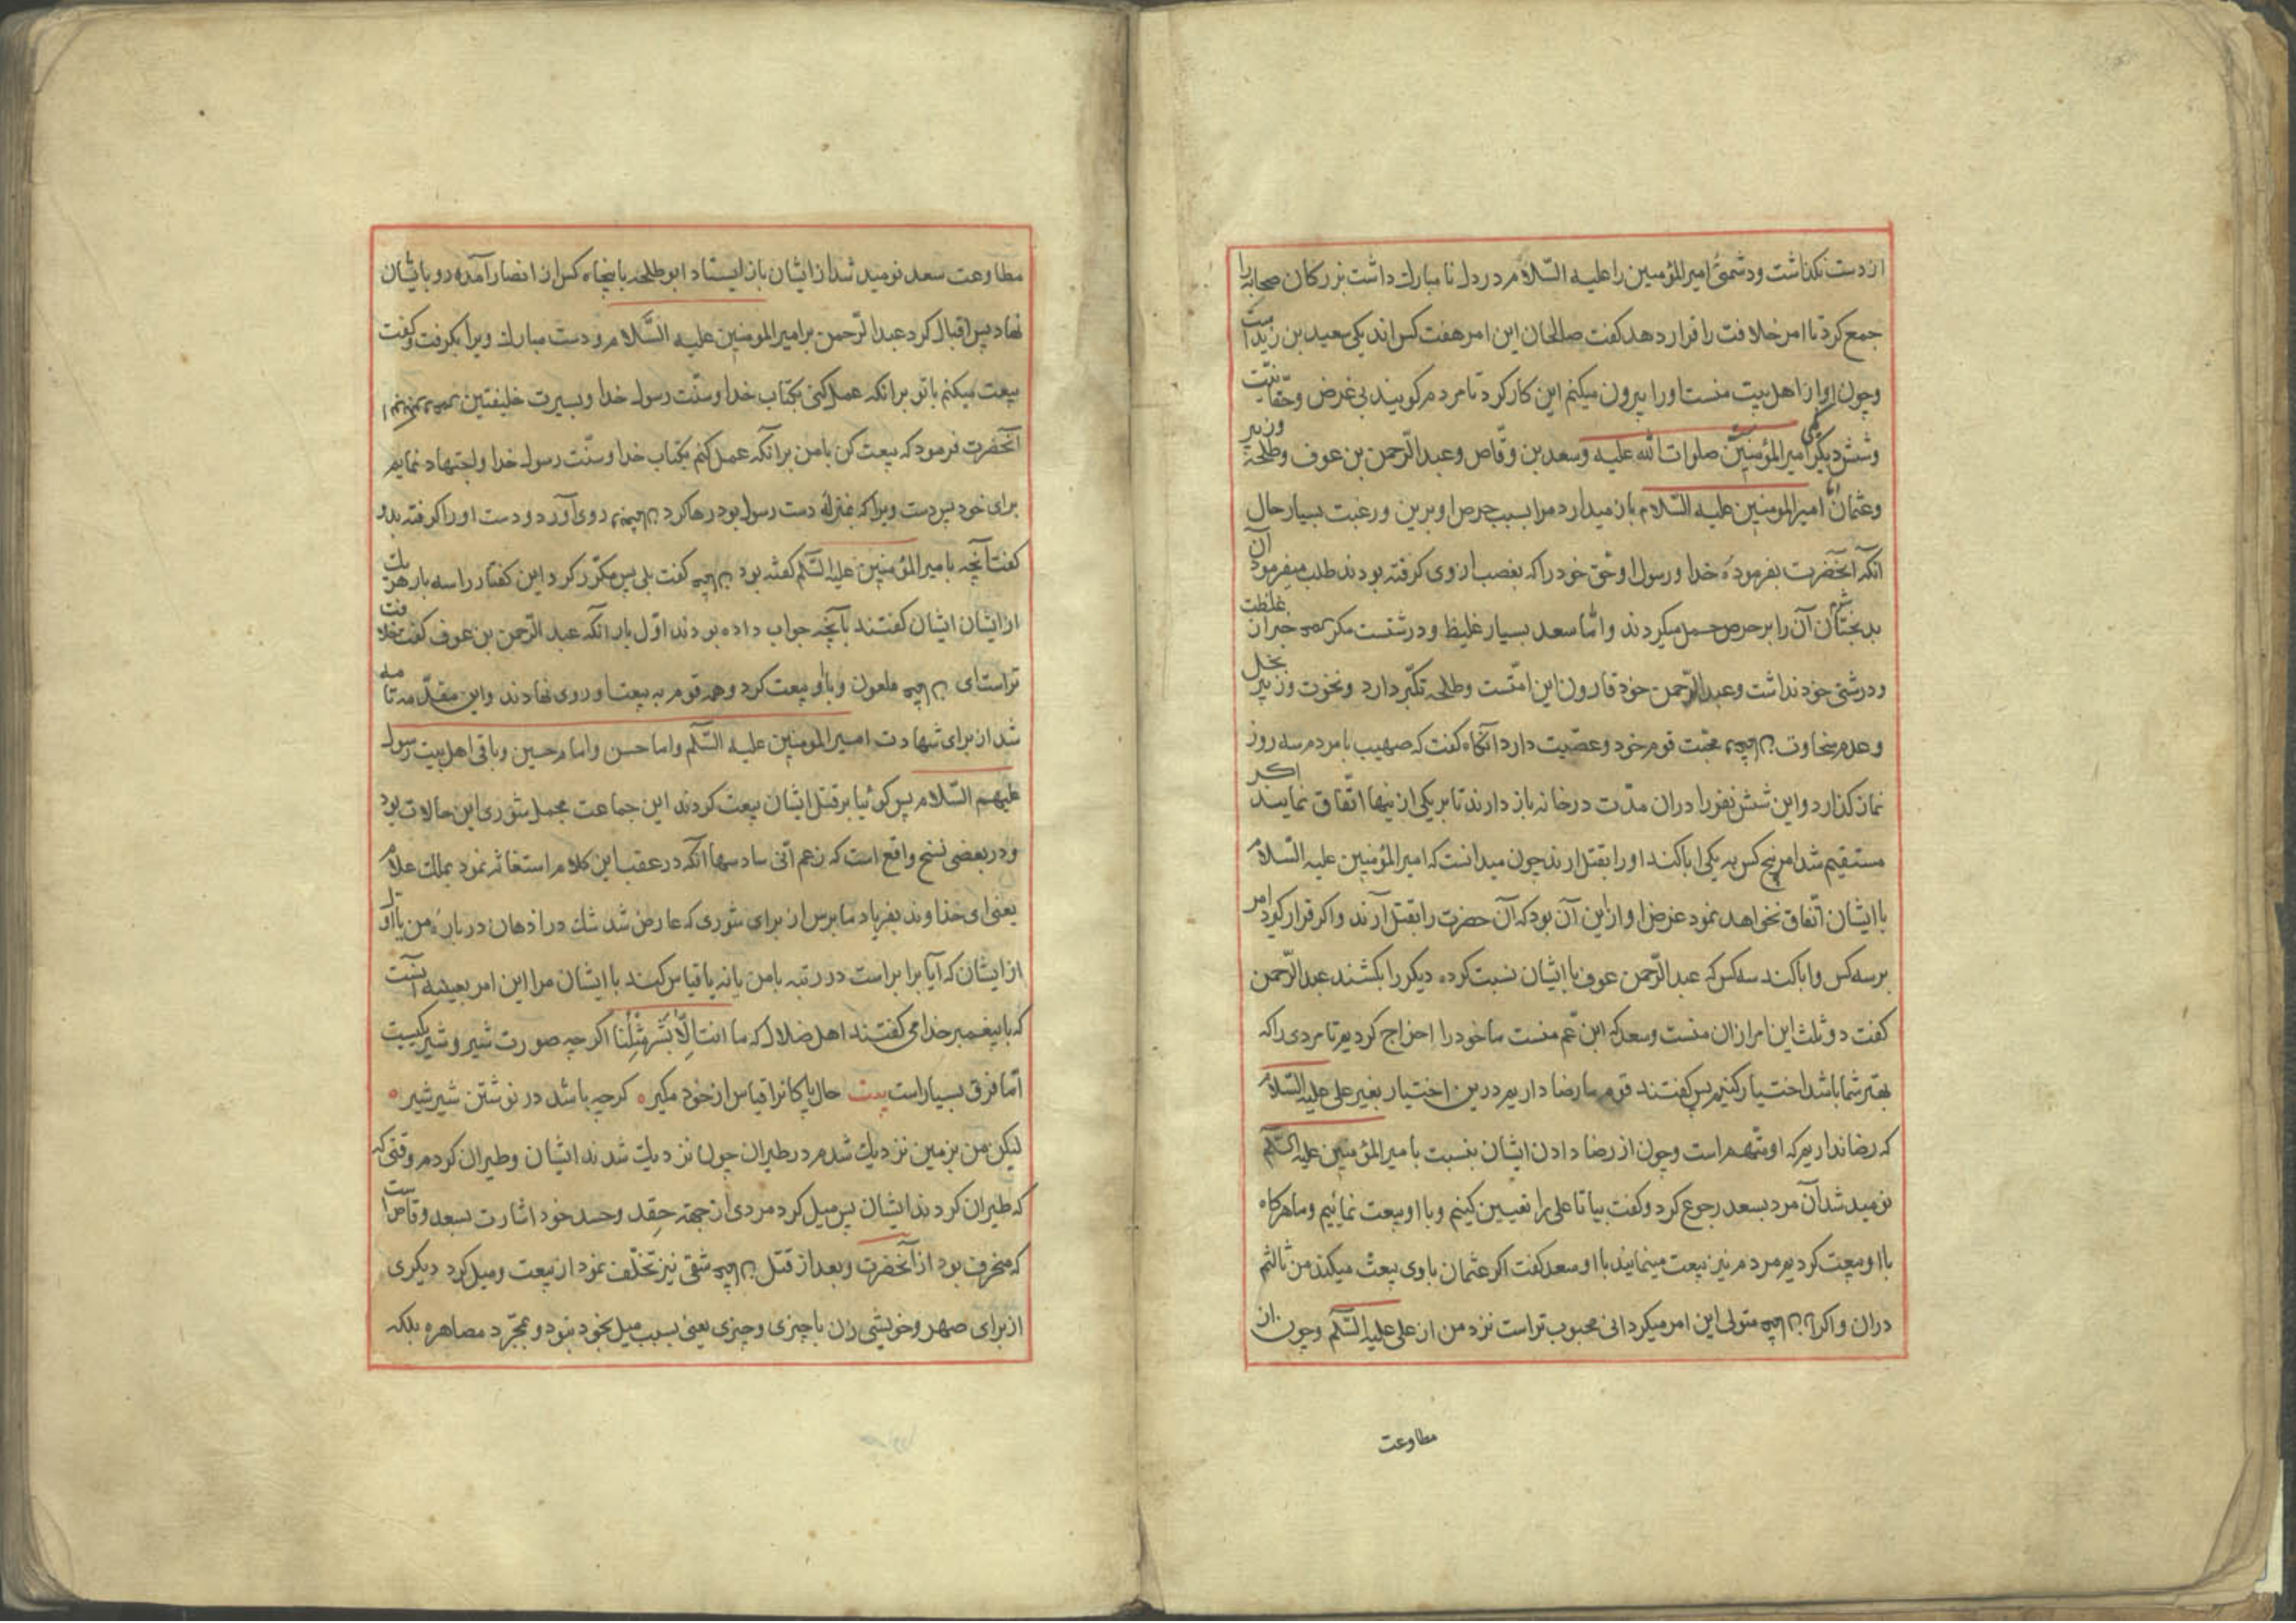 از دست نکذاشت ودشمنئ امیرالمؤمنین را علیه السّلام در دل نا مبارك داشت بزرکان صحابه را
جمع کرد تا امر خلافت را قرار دهد کفت صالحان این امر هفت کس اند یکی سعید بن زید است
وچون او از اهل بیت منست اورا بیرون میکنم این کار کرد تا مردم کویند بی غرض وحقّانیّت
وشش دیکر امیرالمؤمنین صلوات الله علیه وسعد بن وقّاص وعبدالرّحمن بن عوف وطلحة وزبیر
وعثمان امیرالمومنین علیه السّلام باز میدارد مرا بسبب حرص او برین ورغبت بسیار حال
آنکه آنحضرت بفرمودهٔ خدا و رسول او حق خود را که بغصب از وی کرفته بودند طلب میفرمود آن
بدبختان آن را بر حرص حمل میکردند وامّا سعد بسیار غلیظ ودرشتست مکر غلظت
ودرشتی خود نداشت وعبدالرّحمن خود قارون این امّتست وطلحه تکبّر دارد ونخوت وزبیر بخل
وعدم سخاوت محبّت قوم خود وعصبیّت دارد آنکاه کفت که صهیب با مردم سه روز
نماز کذارد واین شش نفر را دران مدّت در خانه باز دارند تا بر یکی از ینها اتّفاق نمایند اکر
مستقیم شد امر پنج کس به یکی ابا کند او را بقتل ارند چون میدانست که امیرالمؤمنین علیه السّلام
با ایشان اتّفاق نخواهد نمود غرض او از این آن بود که آن حضرت را بقتل آرند واکر قرار کیرد امر
بر سه کس وابا کند سه کس که عبدالرّحمن عوف با ایشان نسبت کرده دیکر را بکشند عبدالرّحمن
کفت دو ثلث این امر از ان منست وسعد که ابن عم منست ما خود را اخراج کردیم تا مردی را که
بهتر شما باشد اختیار کنیم پس کفتند قوم ما رضا داریم درین اختیار بغیر علی علیه السّلام
که رضا نداریم که او متّهم است وچون از رضا دادن ایشان بنسبت با میرالمؤمنین علیه السّلم
نومید شد آن مرد بسعد رجوع کرد وکفت بیا تا علی را تعیین کنیم وبا او بیعت نمائیم وما هرکاه
با او بیعت کردیم مردم نیز بیعت مینمایند با او سعد کفت اکر عثمان با وی بیعت میکند من ثالثم
دران واکر متولی این امر میکردانی محبوب تر است نزد من از علی علیه السّلم وچون از
مطاوعت
مطاوعت سعد نومید شد از ایشان باز ایستاد ابو طلحه با پنجاه کس از انصار آمده رو با یشان
نهاد پس اقبال کرد عبدالرّحمن بر امیرالمومنین علیه السّلام و دست مبارك ویرا بکرفت وکفت
بیعت میکنم با تو بر انکه عمل کنی بکتاب خدا وسنّت رسول خدا وبسیرت خلیفتین
آنحضرت فرمود که بیعت کن با من بر انکه عمل کنم بکتاب خدا وسنّت رسول خدا واجتهاد نمایم
برای خود پس دست ویرا که بمنزلهٔ دست رسول بود رها کرد روی آورد و دست او را کرفته بدو
کفت آنچه با میرالمؤمنین علیه السّلم کفته بود کفت بلی پس مکرّر کرد این کفتار را سه بار هر یك
از ایشان ایشان کفتند با آنچه جواب داده بودند اوّل بار انکه عبدالرّحمن بن عوف کفت خلافت
تراست ای ملعون وبا او بیعت کرد وهمه قوم به بیعت او روی نهادند واین مقدّمه
شد از برای شهادت امیرالمومنین علیه السّلم واما حسن واما م حسین وباقی اهل بیت رسول
علیهم السّلام پس کوئیا بر قتل ایشان بیعت کردند این جماعت مجمل شوری این حالات بود
ودر بعضی نسخ واقع است که زعم انّی سادسها آنکه در عقب این کلام استغاثه نمود بملك علّام
یعنی ای خداوند بفریاد ما برس از برای شوری که عارض شد شك در اذهان در بارهٔ من با اوّل
از ایشان که آیا برابر است در رتبه با من یا نه یا قیاس کنند با ایشان مرا این امر بعینه آنست
که با پیغمبر خدا می کفتند اهل ضلال که ما انت الّا بَشَر مِثْلُنا اکرچه صورت شیر وشیر یکیست
امّا فرق بسیار است بیت حال پاکانرا قیاس از خود مکیر ه کرچه باشد در نوشتن شیر شیر ه
لیکن من بزمین نزدیك شدم در طیران چون نزدیك شدند ایشان وطیران کردم وقتی که
که طیران کردند ایشان پس میل کرد مردی از جهة حِقد وحسد خود اشارت بسعد وقاص است
که منحرف بود از آنحضرت وبعد از قتل شقی نیز تخلّف نمود از بیعت ومیل کرد دیکری
از برای صهر وخویشی زن با چیزی وچیزی یعنی بسبب میل بخود نبود ومجرّد مصاهره بلکه